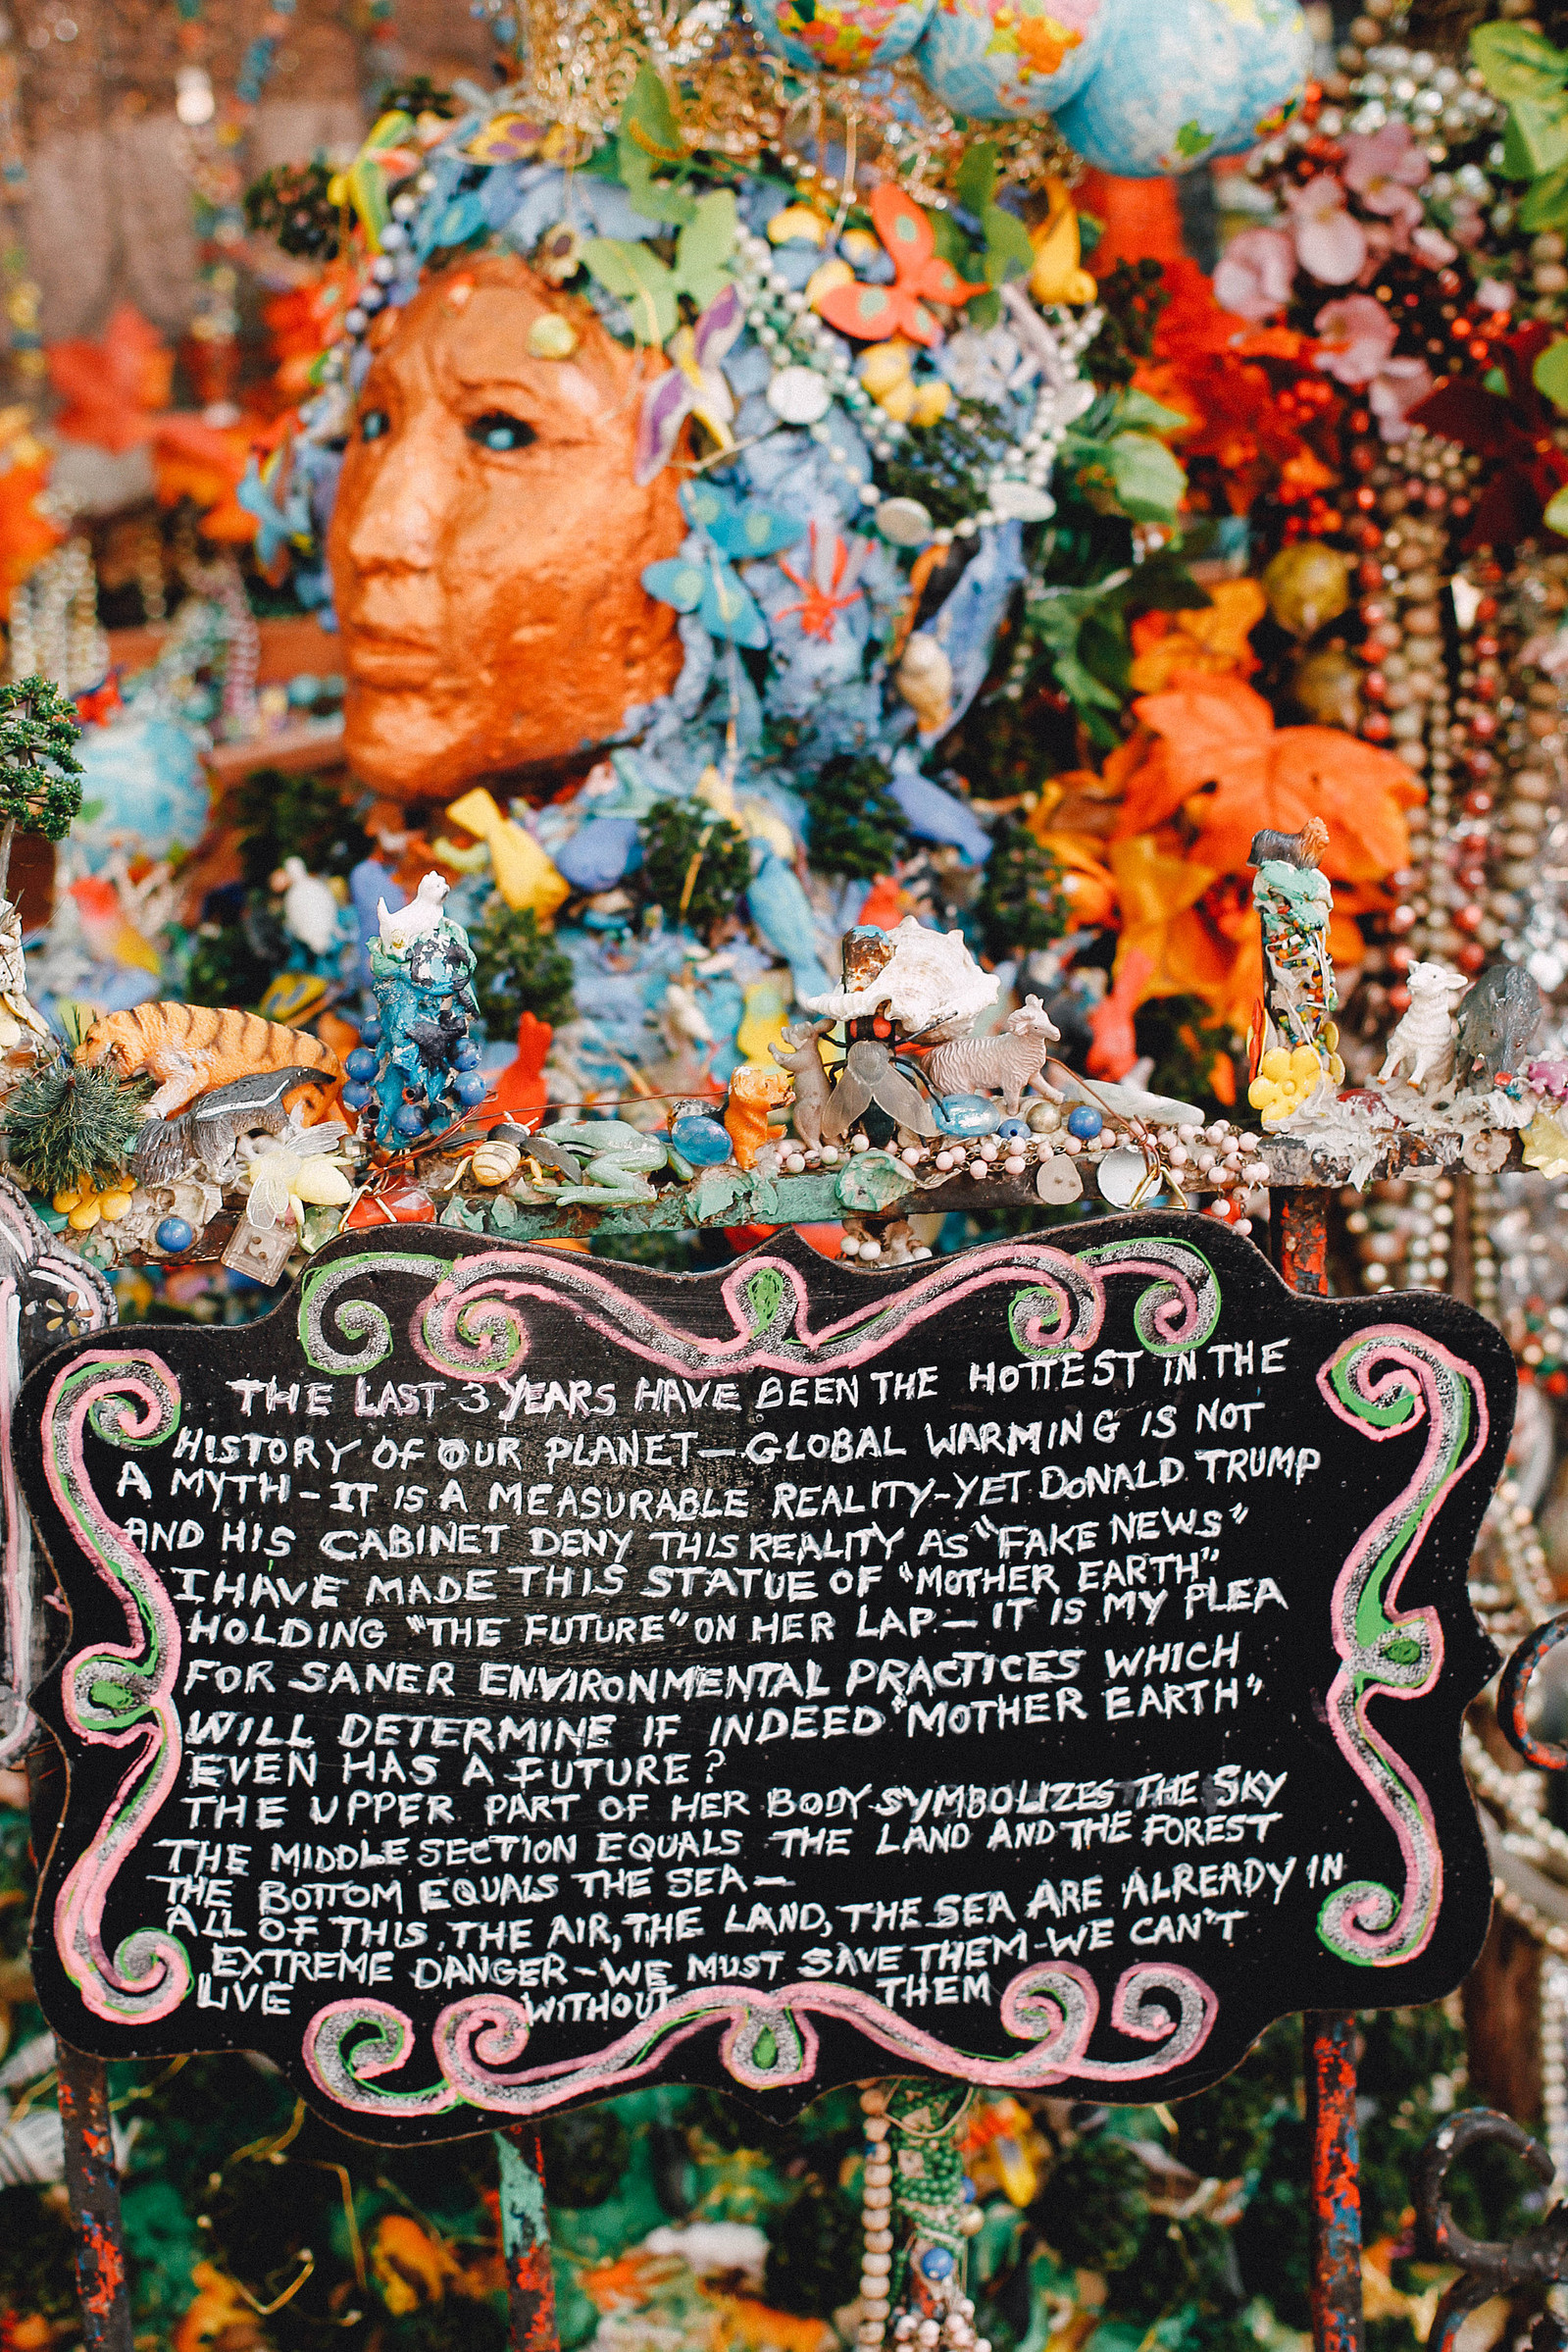 THE LAST 3 YEARS HAVE BEEN THE HOTTEST IN THE
HISTORY OF OUR PLANET — GLOBAL WARMING IS NOT
A MYTH - IT IS A MEASURABLE REALITY - YET DONALD TRUMP
AND HIS CABINET DENY THIS REALITY AS "FAKE NEWS"
I HAVE MADE THIS STATUE OF "MOTHER EARTH"
HOLDING "THE FUTURE" ON HER LAP — IT IS MY PLEA
FOR SANER ENVIRONMENTAL PRACTICES WHICH
WILL DETERMINE IF INDEED "MOTHER EARTH"
EVEN HAS A FUTURE?
THE UPPER PART OF HER BODY SYMBOLIZES THE SKY
THE MIDDLE SECTION EQUALS THE LAND AND THE FOREST
THE BOTTOM EQUALS THE SEA —
ALL OF THIS, THE AIR, THE LAND, THE SEA ARE ALREADY IN
EXTREME DANGER - WE MUST SAVE THEM - WE CAN'T
LIVE WITHOUT THEM